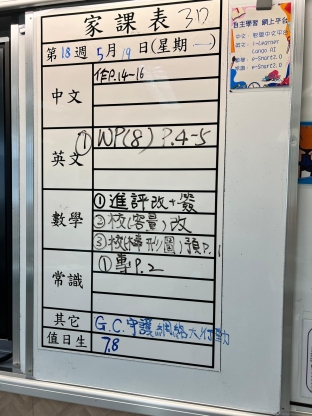 家課表 3D
第18週 5月19日(星期一)
中文
作P.14-16
英文
① WP(8) P.4-5
數學
① 進評改+簽
② 校(容量)改
③ 校(棒形圖)預P.1
常識
① 專P.2
其它
G.C.守護網絡大行動
值日生
7.8
自主學習 網上平台
i-Learner
e-Smart2.0
e-Smart2.0